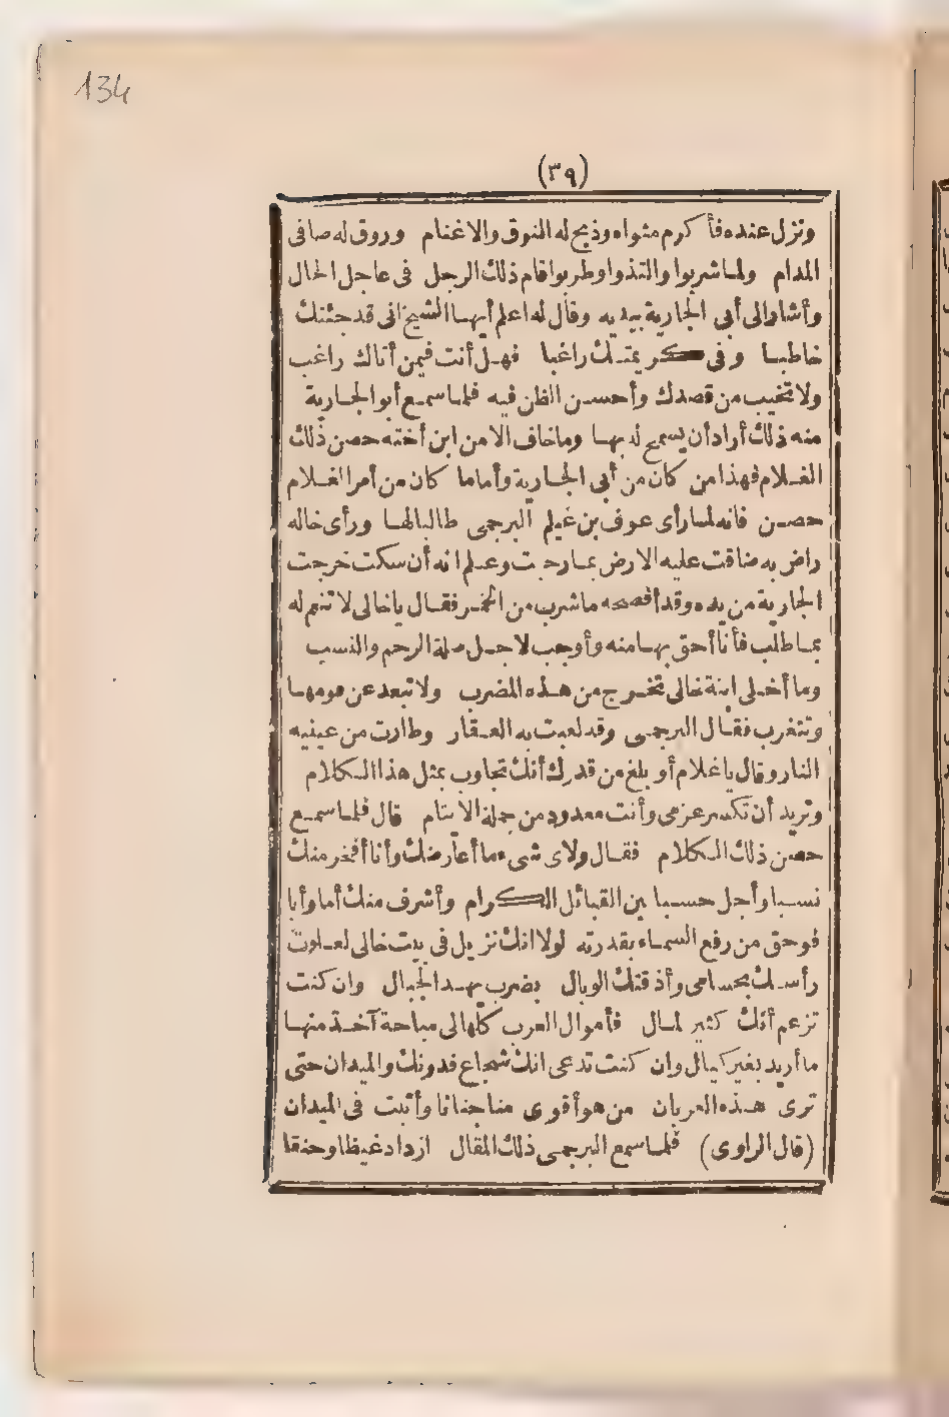 134
(٣٩)
ونزل عنده فأكرم مثواه وذبح له النوق والاغنام وروق له صافى
المدام ولما شربوا والتذوا وطربوا قام ذلك الرجل فى عاجل الحال
وأشار الى أبى الجارية بيديه وقال له اعلم أيها الشيخ انى قد جئتك
خاطبا وفى كريمتك راغبا فهل أنت فيمن أتاك راغب
ولا تخيب من قصدك وأحسن الظن فيه فلما سمع أبو الجارية
منه ذلك أراد أن يسمح له بها وما خاف الا من ابن أخته حصن ذلك
الغلام فهذا من كان من أبى الجارية وأما ما كان من أمر الغلام
حصن فانه لما رأى عوف بن غيلم البرجمى طالبا لها ورأى خاله
راض به ضاقت عليه الارض بما رحبت وعلم انه أن سكت خرجت
الجارية من يده وقد أفصحه ما شرب من الخمر فقال يا خالى لا تنعم له
بما طلب فأنا أحق بها منه وأوجب لاجل صلة الرحم والنسب
وما أخلى ابنة خالى تخرج من هذه المضرب ولا تبعد عن قومها
وتتغرب فقال البرجمى وقد لعبت به العقار وطارت من عينيه
النار وقال يا غلام أو بلغ من قدرك أنك تجاوب بمثل هذا الكلام
وتريد أن تكسر عزمى وأنت معدود من جملة الايتام قال فلما سمع
حصن ذلك الكلام فقال ولاى شىء ما أعارضك وأنا أفخر منك
نسبا وأجل حسبا بين القبائل الكرام وأشرف منك أما وأبا
فوحق من رفع السماء بقدرته لولا انك نزيل فى بيت خالى لعلوت
رأسك بحسامى وأذقتك الوبال بضرب يهد الجبال وان كنت
تزعم أنك كثير المال فأموال العرب كلها لى مباحة آخذ منها
ما أريد بغير كيال وان كنت تدعى انك شجاع فدونك والميدان حتى
ترى هذه العربان من هو أقوى منا جنانا وأثبت فى الميدان
(قال الراوى) فلما سمع البرجمى ذلك المقال ازداد غيظا وحنقا